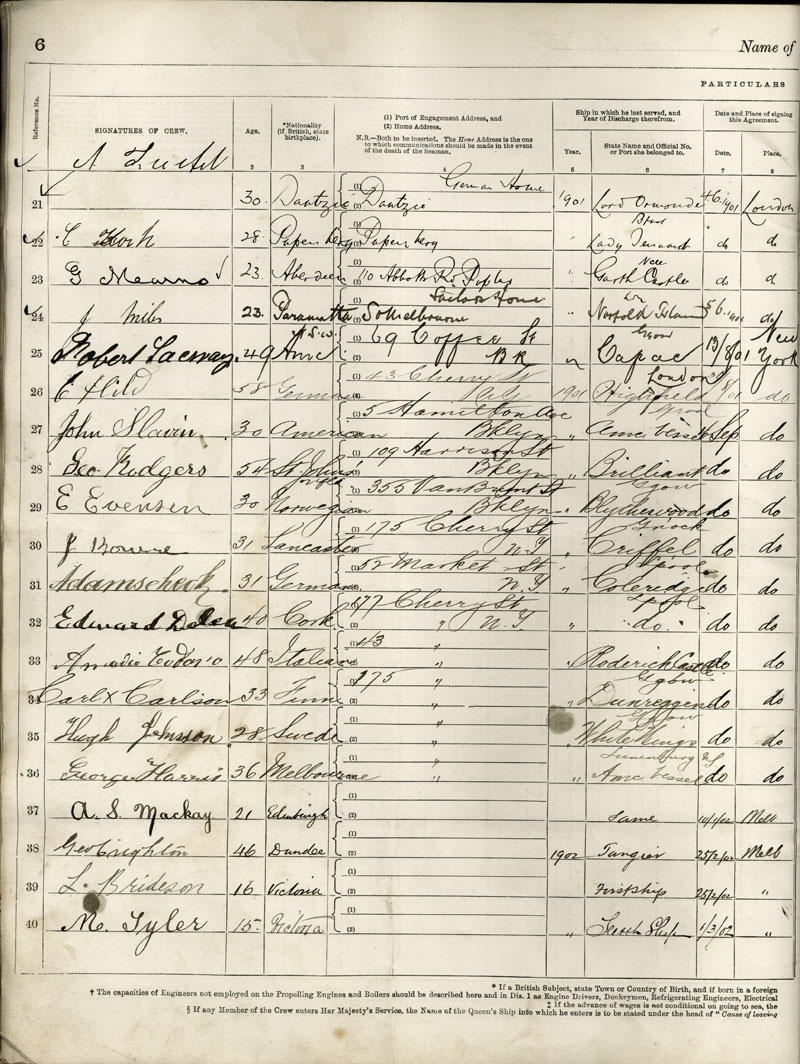 6
Name of
PARTICULARS
Reference No.
SIGNATURES OF CREW.
Age.
*Nationality (if British, state birthplace).
(1) Port of Engagement Address, and
(2) Home Address.
N.B.—Both to be inserted. The Home Address is the one
to which communications should be made in the event
of the death of the Seaman.
Ship in which he last served, and
Year of Discharge therefrom.
Year.
State Name and Official No.
or Port she belonged to.
Date and Place of signing
this Agreement.
Date.
Place.
2 3 4 5 6 7 8
21 30. Dantzic (1) German Home (2) Dantzic 1901 Lord Ormonde 4.6.1901 London
22 C 28 Papenberg (1) (2) Papenberg " Lady do do
23 G Mearns 23. Aberdeen (1) 110 Abbott Rd Poplar " Garth Castle do do
24 J Miles 23. Paramatta N.S.W. (1) Sailors Home (2) Melbourne " Norfold Island 5.6.1901 do
25 Robert 49 Amc (1) 69 Coffee St (2) BK " Capac 13/8/01 New York
26 C Hild 58 German (1) 43 Cherry St (2) City 1901 Highfield London do
27 John Slavin. 30 American (1) 5 Hamilton Ave (2) Bklyn " Amc. Vessel Sep do
28 Geo Rodgers 54 St Johns (1) 109 Harrison St (2) Bklyn " Brilliant do do
29 E Evensen 30 Norwegian (1) 355 VanBrunt St (2) Bklyn " Blythewood do do
30 J Bowne 31 Lancaster (1) 175 Cherry St (2) N.Y " Criffel do do
31 Adamscheck 31 German (1) 52 Market St (2) N.Y " Coleridge do do
32 Edward 40 Cork (1) 77 Cherry St (2) " N.Y " do. do do
33 48 Italian (1) 43 " (2) " Roderick do do
34 Carl X Carlson 33 Finn (1) 175 " (2) " Dunreggin do do
35 Hugh Johnson 28 Swede (1) (2) " White Wings do do
36 George Harris 36 Melbourne (1) (2) " " Amc. Vessel do do
37 A. S. Mackay 21 Edinburgh (1) (2) Same 10/1/02 Melb
38 Geo Crighton 46 Dundee (1) (2) 1902 Tangier 25/2/02 Melb
39 L. Brideson 16 Victoria (1) (2) First Ship 25/2/02 "
40 M. Tyler 15 Victoria (1) (2) " Ship 1/3/02 "
* If a British Subject, state Town or Country of Birth, and if born in a foreign
† The capacities of Engineers not employed on the Propelling Engines and Boilers should be described here and in Dis. 1 as Engine Drivers, Donkeymen, Refrigerating Engineers, Electrical
‡ If the advance of wages is not conditional on going to sea, the
§ If any Member of the Crew enters Her Majesty's Service, the Name of the Queen's Ship into which he enters is to be stated under the head of "Cause of leaving